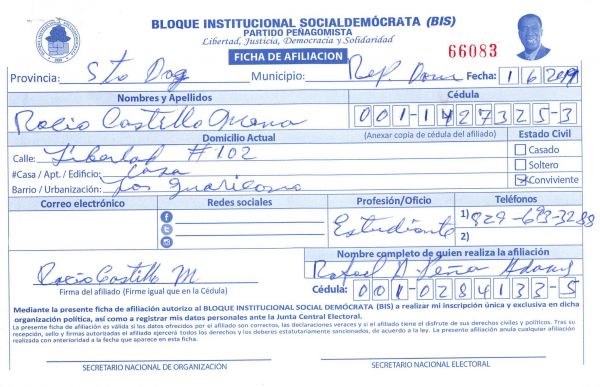 BLOQUE INSTITUCIONAL SOCIALDEMÓCRATA (BIS)
PARTIDO PEÑAGOMISTA
Libertad, Justicia, Democracia y Solidaridad
FICHA DE AFILIACION
66083
Provincia: Sto Dgo Municipio: Rep. Dom Fecha: 1/6/2019
Nombres y Apellidos
Cédula
Rocio Castillo Mena
001-1427325-3
Domicilio Actual
(Anexar copia de cédula del afiliado)
Estado Civil
Calle: Libertad #102
Casado
#Casa / Apt. / Edificio: Casa
Soltero
Barrio / Urbanización: Los Guaricanos
Conviviente
Correo electrónico
Redes sociales
Profesión/Oficio
Teléfonos
Estudiante
1) 829-693-3288
2)
Nombre completo de quien realiza la afiliación
Rocio Castillo M
Rafael A Peña
Firma del afiliado (Firme igual que en la Cédula)
Cédula: 001-0284133-5
Mediante la presente ficha de afiliación autorizo al BLOQUE INSTITUCIONAL SOCIAL DEMÓCRATA (BIS) a realizar mi inscripción única y exclusiva en dicha
organización política, así como a registrar mis datos personales ante la Junta Central Electoral.
La presente ficha de afiliación es válida si los datos ofrecidos por el afiliado son correctos, las declaraciones veraces y si el afiliado tiene el disfrute de sus derechos civiles y políticos. Tras su
recepción, sello y firmas autorizadas el afiliado ejercerá todos los derechos y los deberes estatutariamente sancionados, de acuerdo a la ley. La presente afiliación anula cualquier afiliación
realizada con anterioridad a la fecha que aparece en esta ficha.
SECRETARIO NACIONAL DE ORGANIZACIÓN
SECRETARIO NACIONAL ELECTORAL